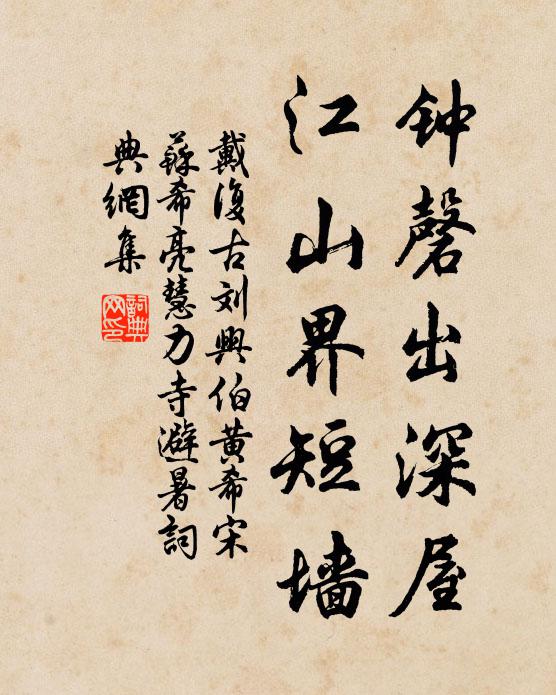 钟磬出深屋
江山界短墙
戴復古刘興伯黄希宋
蘇希亮慧力寺避暑詞
典網集
詞典
网印